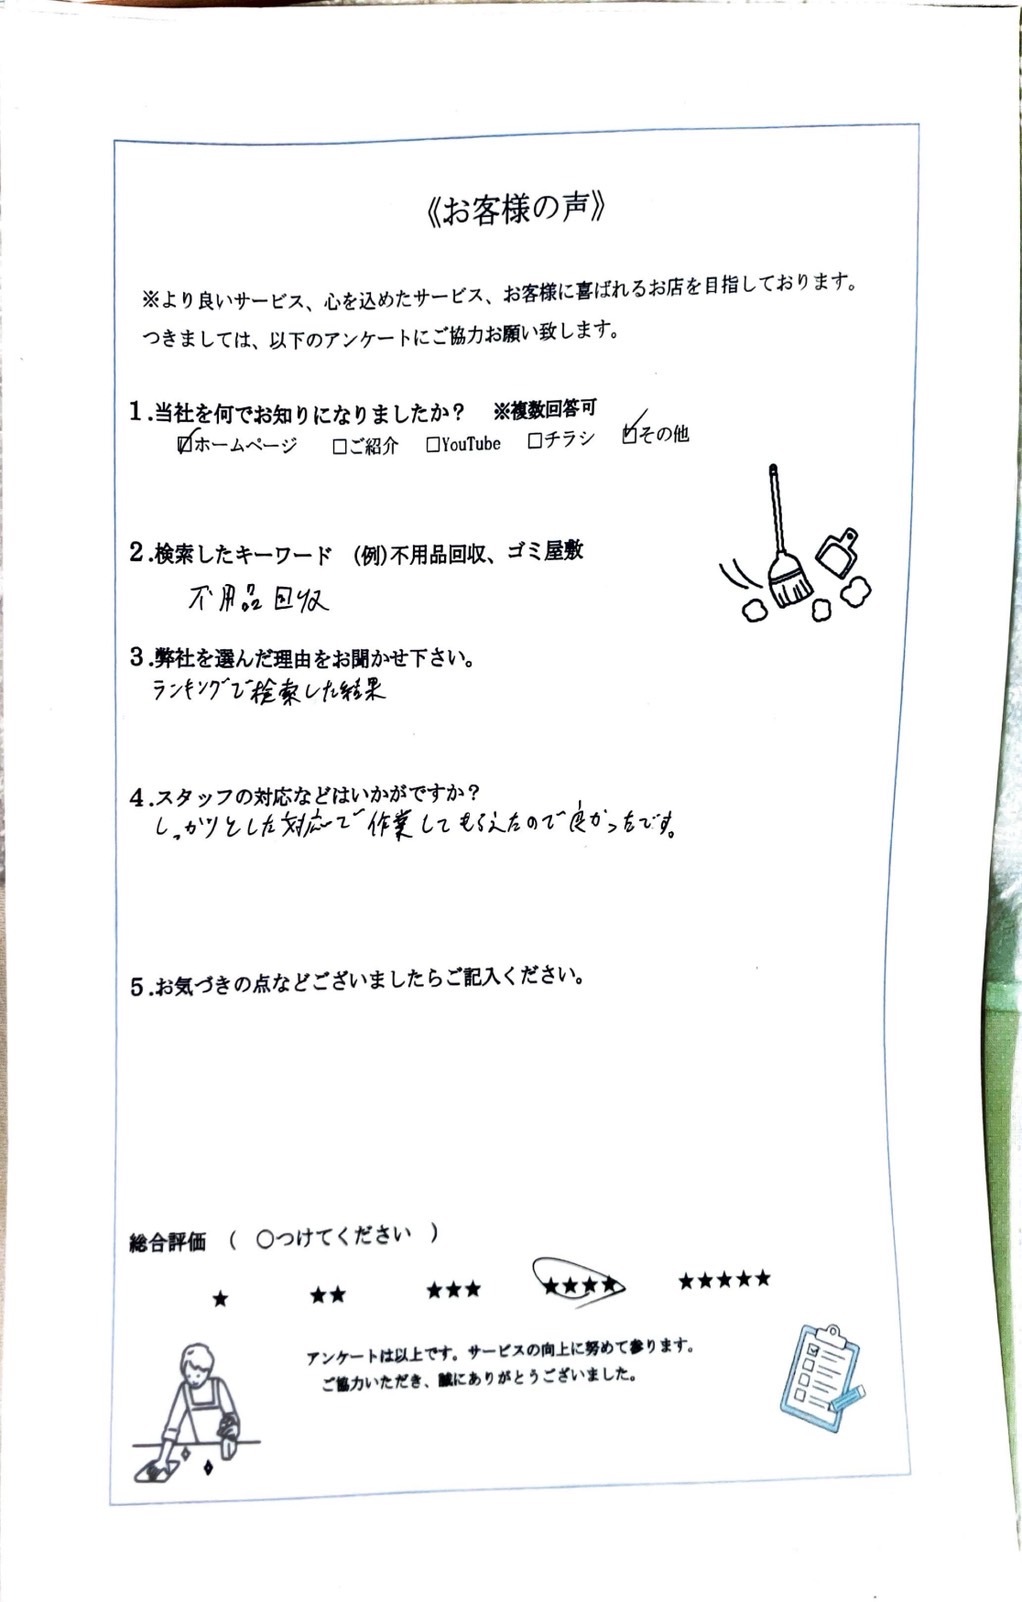 《お客様の声》
※より良いサービス、心を込めたサービス、お客様に喜ばれるお店を目指しております。
つきましては、以下のアンケートにご協力お願い致します。
1.当社を何でお知りになりましたか? ※複数回答可
☑ホームページ □ご紹介 □YouTube □チラシ ☑その他
2.検索したキーワード (例)不用品回収、ゴミ屋敷
不用品回収
3.弊社を選んだ理由をお聞かせ下さい。
ランキングで検索した結果
4.スタッフの対応などはいかがですか?
しっかりとした対応で作業してもらえたので良かったです。
5.お気づきの点などございましたらご記入ください。
総合評価 ( ○つけてください )
★ ★★ ★★★ ★★★★ ★★★★★
アンケートは以上です。サービスの向上に努めて参ります。
ご協力いただき、誠にありがとうございました。